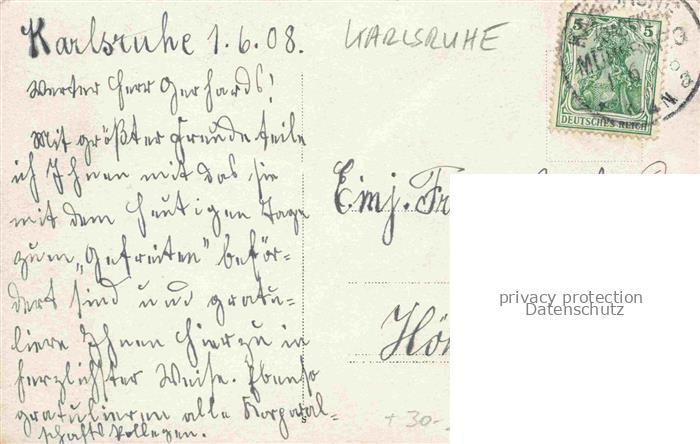 Karlsruhe 1.6.08.
KARLSRUHE
Werter Herr Gerhards!
Mit größter Freude teile
ich Ihnen mit das sie
mit dem heutigen Tage
zum „Gefreiten" beför-
dert sind und gratu-
liere Ihnen hierzu in
herzlichster Weise. Ebenso
gratulieren alle Korporal-
schafts Kollegen.
5 5
DEUTSCHES REICH
Einj.
privacy protection
Datenschutz
+30-